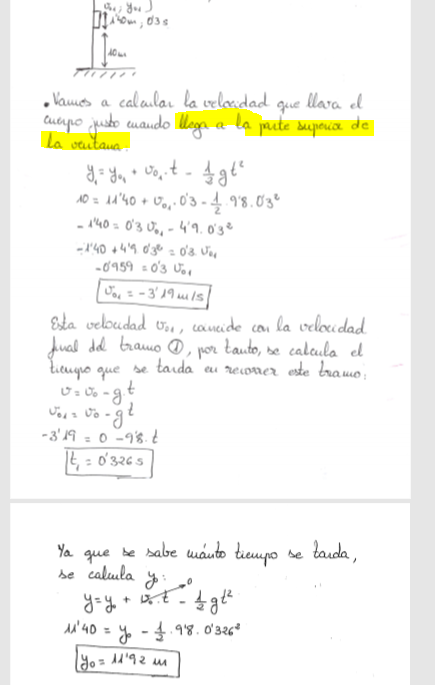 v₀₁, y₀₁
1'40m, 0'3s
10m
• Vamos a calcular la velocidad que lleva el
cuerpo justo cuando llega a la parte superior de
la ventana:
y₁ = y₀₁ + v₀₁·t - 1/2 gt²
10 = 11'40 + v₀₁·0'3 - 1/2·9'8·0'3²
-1'40 = 0'3 v₀₁ - 4'9·0'3²
-1'40 + 4'9 0'3² = 0'3 v₀₁
-0'959 = 0'3 v₀₁
v₀₁ = -3'19 m/s
Esta velocidad v₀₁, coincide con la velocidad
final del tramo ①, por tanto, se calcula el
tiempo que se tarda en recorrer este tramo:
v = v₀ - g·t
v₀₁ = v₀ - gt
-3'19 = 0 - 9'8·t
t₁ = 0'326 s
Ya que se sabe cuánto tiempo se tarda,
se calcula y₀:
y = y₀ + v₀·t⁰ - 1/2 gt²
11'40 = y₀ - 1/2·9'8·0'326²
y₀ = 11'92 m